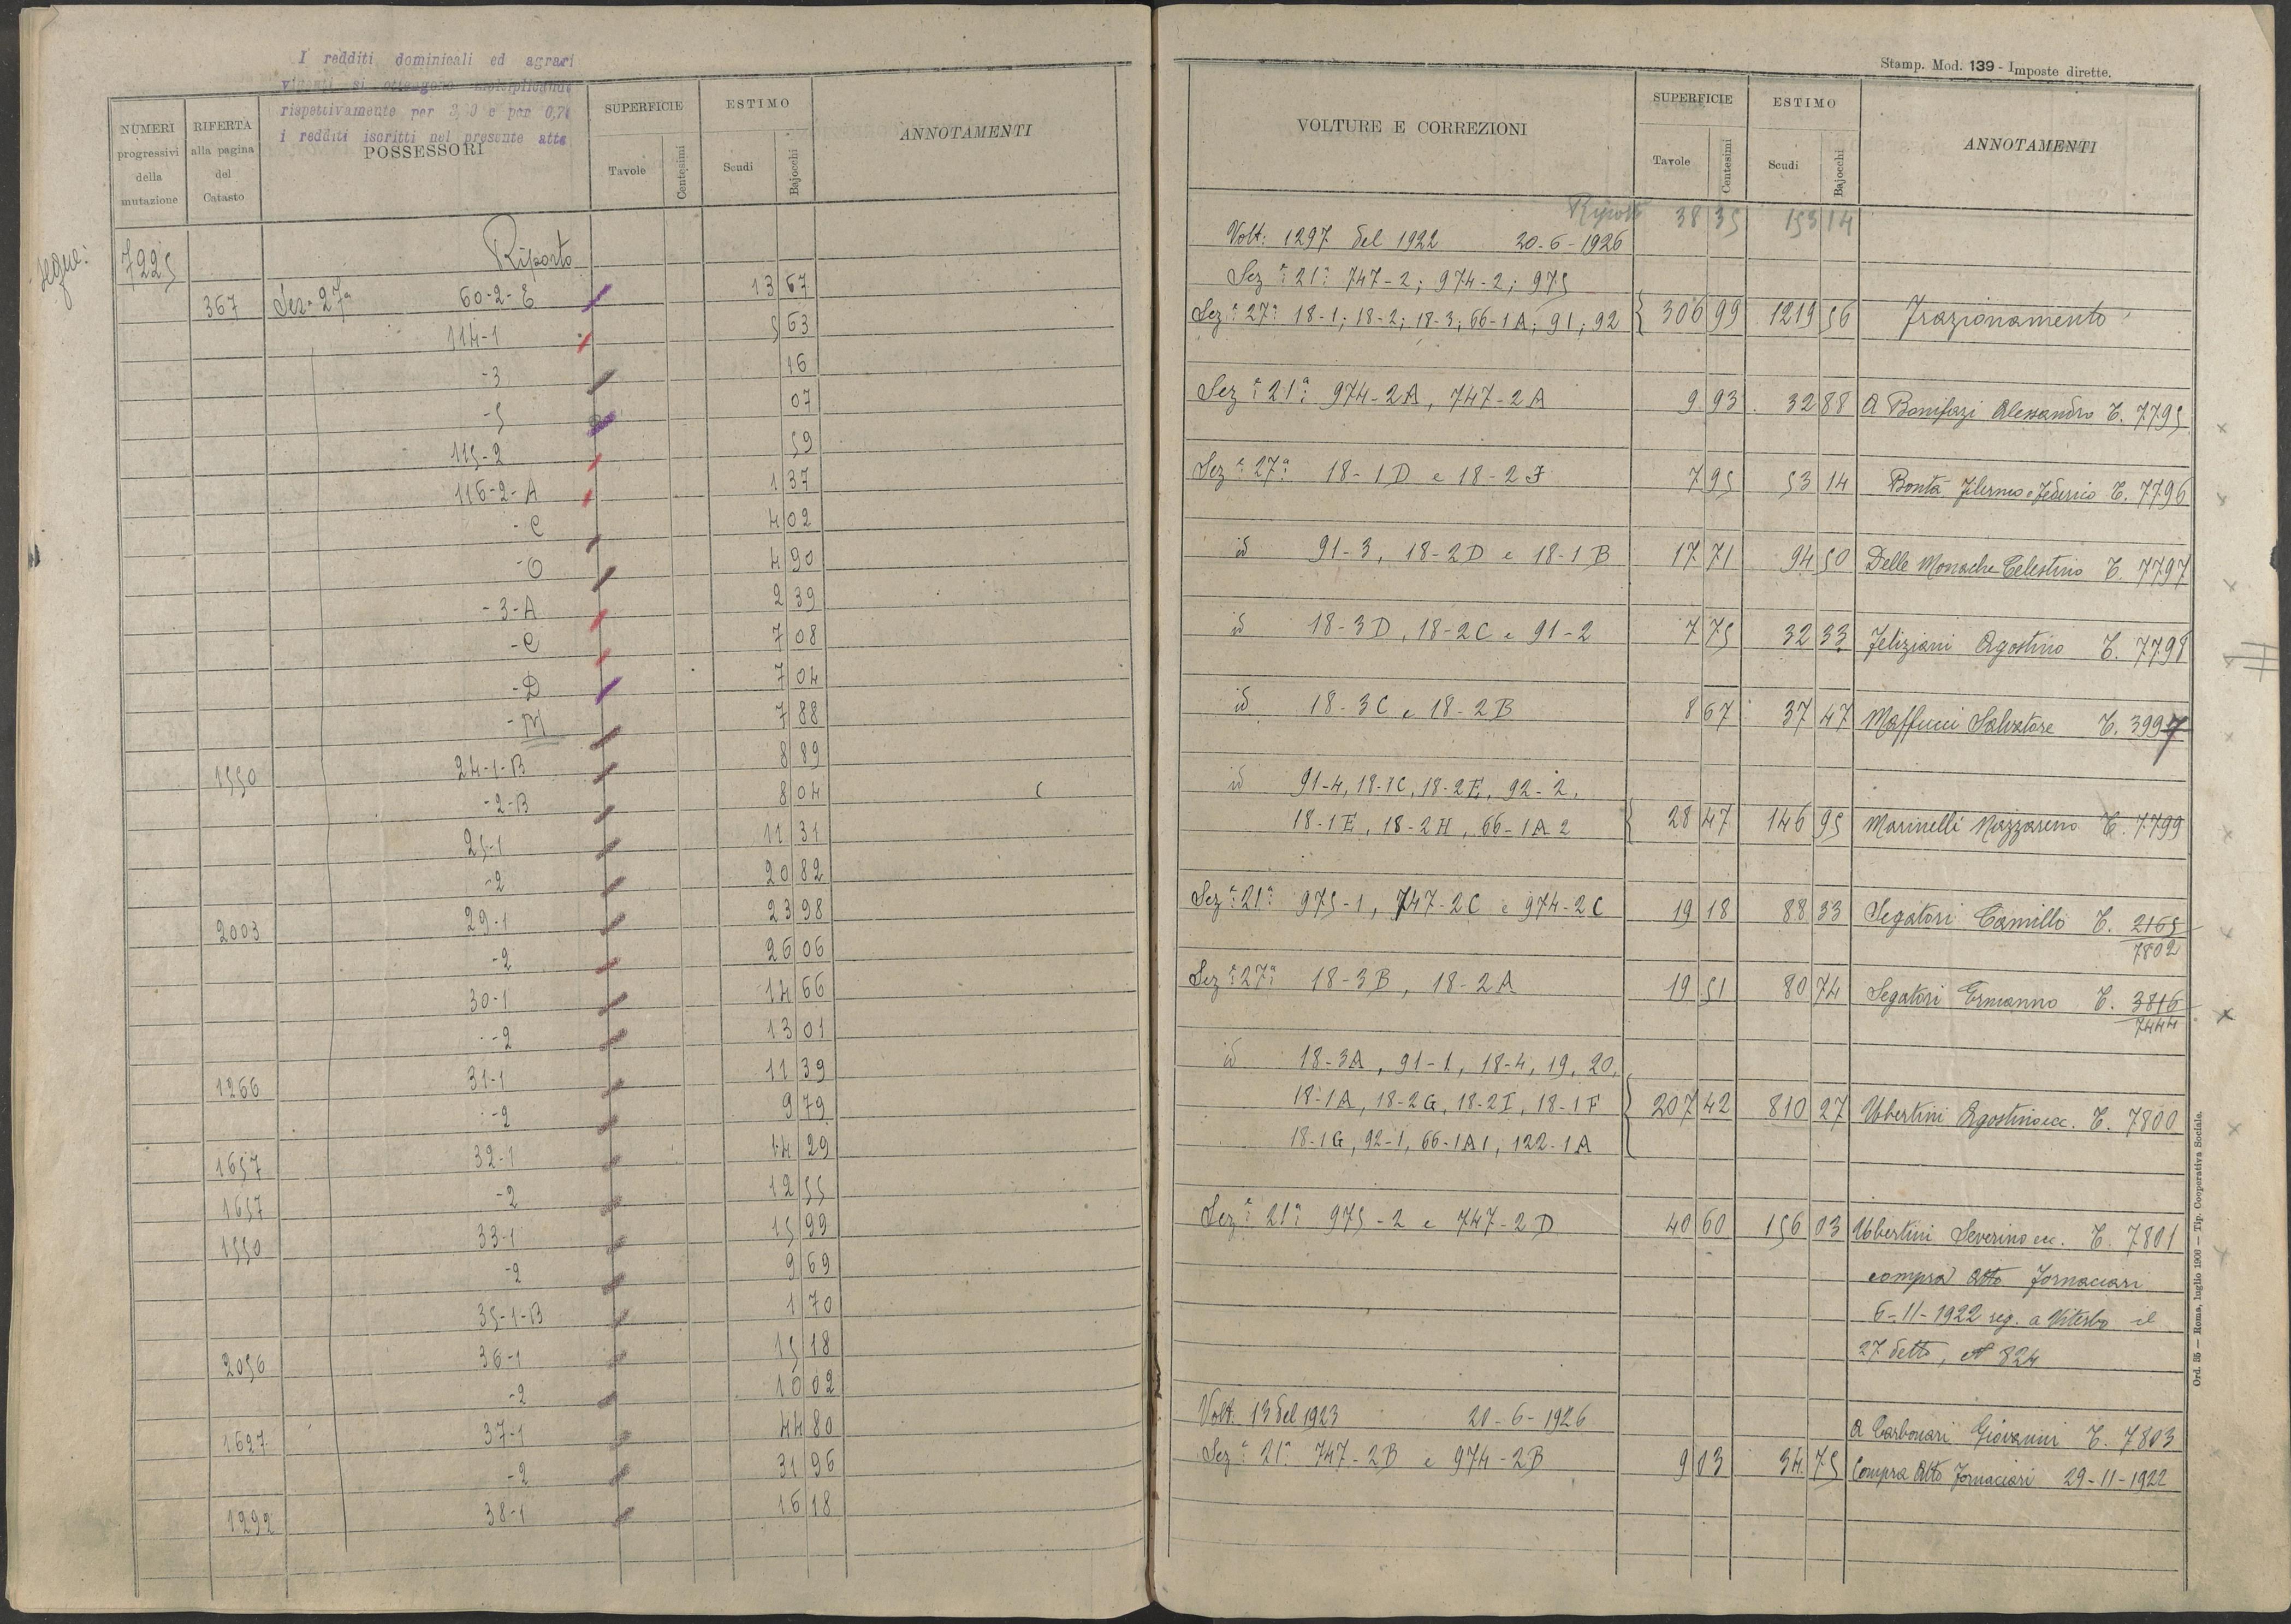 I redditi dominicali ed agrari
vigenti si ottengono moltiplicando
rispettivamente per 3, 0 e per 0,70
i redditi iscritti nel presente atto
NUMERI progressivi della mutazione
RIFERTA alla pagina del Catasto
POSSESSORI
SUPERFICIE
Tavole
Centesimi
ESTIMO
Scudi
Bajocchi
ANNOTAMENTI
segue: 7225 Riporto
367 Sez. 27ª 60-2-E 13 67
114-1 5 63
-3 16
-5 07
115-2 59
116-2-A 1 37
-C 4 02
-O 4 90
-3-A 2 39
-C 7 08
-D 7 04
-M 7 88
1550 24-1-B 8 89
-2-B 8 04
25-1 11 31
-2 20 82
2003 29-1 23 98
-2 26 06
30-1 14 66
-2 13 01
1266 31-1 11 39
-2 9 79
1657 32-1 14 29
1657 -2 12 55
1550 33-1 15 99
-2 9 69
35-1-B 1 70
2056 36-1 15 18
-2 10 02
1627 37-1 44 80
-2 31 96
1292 38-1 16 18
Stamp. Mod. 139 - Imposte dirette.
VOLTURE E CORREZIONI
SUPERFICIE
Tavole
Centesimi
ESTIMO
Scudi
Bajocchi
ANNOTAMENTI
Riporto 38 35 153 14
Volt: 1297 del 1922 20-6-1926
Sezᵉ 21ª 747-2; 974-2; 975
Sezᵉ 27ª 18-1; 18-2; 18-3; 66-1A; 91; 92 306 99 1219 56 Frazionamento
Sezᵉ 21ª 974-2A, 747-2A 9 93 32 88 A Bonifazi Alessandro T. 7795
Sezᵉ 27ª 18-1D e 18-2F 7 95 53 14 Bontà Filermo e Federico T. 7796
id 91-3, 18-2D e 18-1B 17 71 94 50 Delle Monache Celestino T. 7797
id 18-3D, 18-2C e 91-2 7 75 32 33 Feliziani Agostino T. 7798
id 18-3C e 18-2B 8 67 37 47 Maffucci Salvatore T. 3997
id 91-4, 18-1C, 18-2E, 92-2,
18-1E, 18-2H, 66-1A2 28 47 146 95 Marinelli Nazzareno T. 7799
Sezᵉ 21ª 975-1, 747-2C e 974-2C 19 18 88 33 Segatori Camillo T. 2165
7802
Sezᵉ 27ª 18-3B, 18-2A 19 51 80 74 Segatori Ermanno T. 3816
7444
id 18-3A, 91-1, 18-4, 19, 20,
18-1A, 18-2G, 18-2I, 18-1F 207 42 810 27 Ubertini Agostino ecc. T. 7800
18-1G, 92-1, 66-1A1, 122-1A
Sezᵉ 21ª 975-2 e 747-2D 40 60 156 03 Ubertini Severino ecc. T. 7801
compra Atto Fornaciari
6-11-1922 reg. a Viterbo il
27 detto, N 824
Volt. 13 del 1923 20-6-1926
A Carbonari Giovanni T. 7803
Sezᵉ 21ª 747-2B e 974-2B 9 03 34 75 Compra Atto Fornaciari 29-11-1922
Ord. 35 — Roma, luglio 1900 — Tip. Cooperativa Sociale.